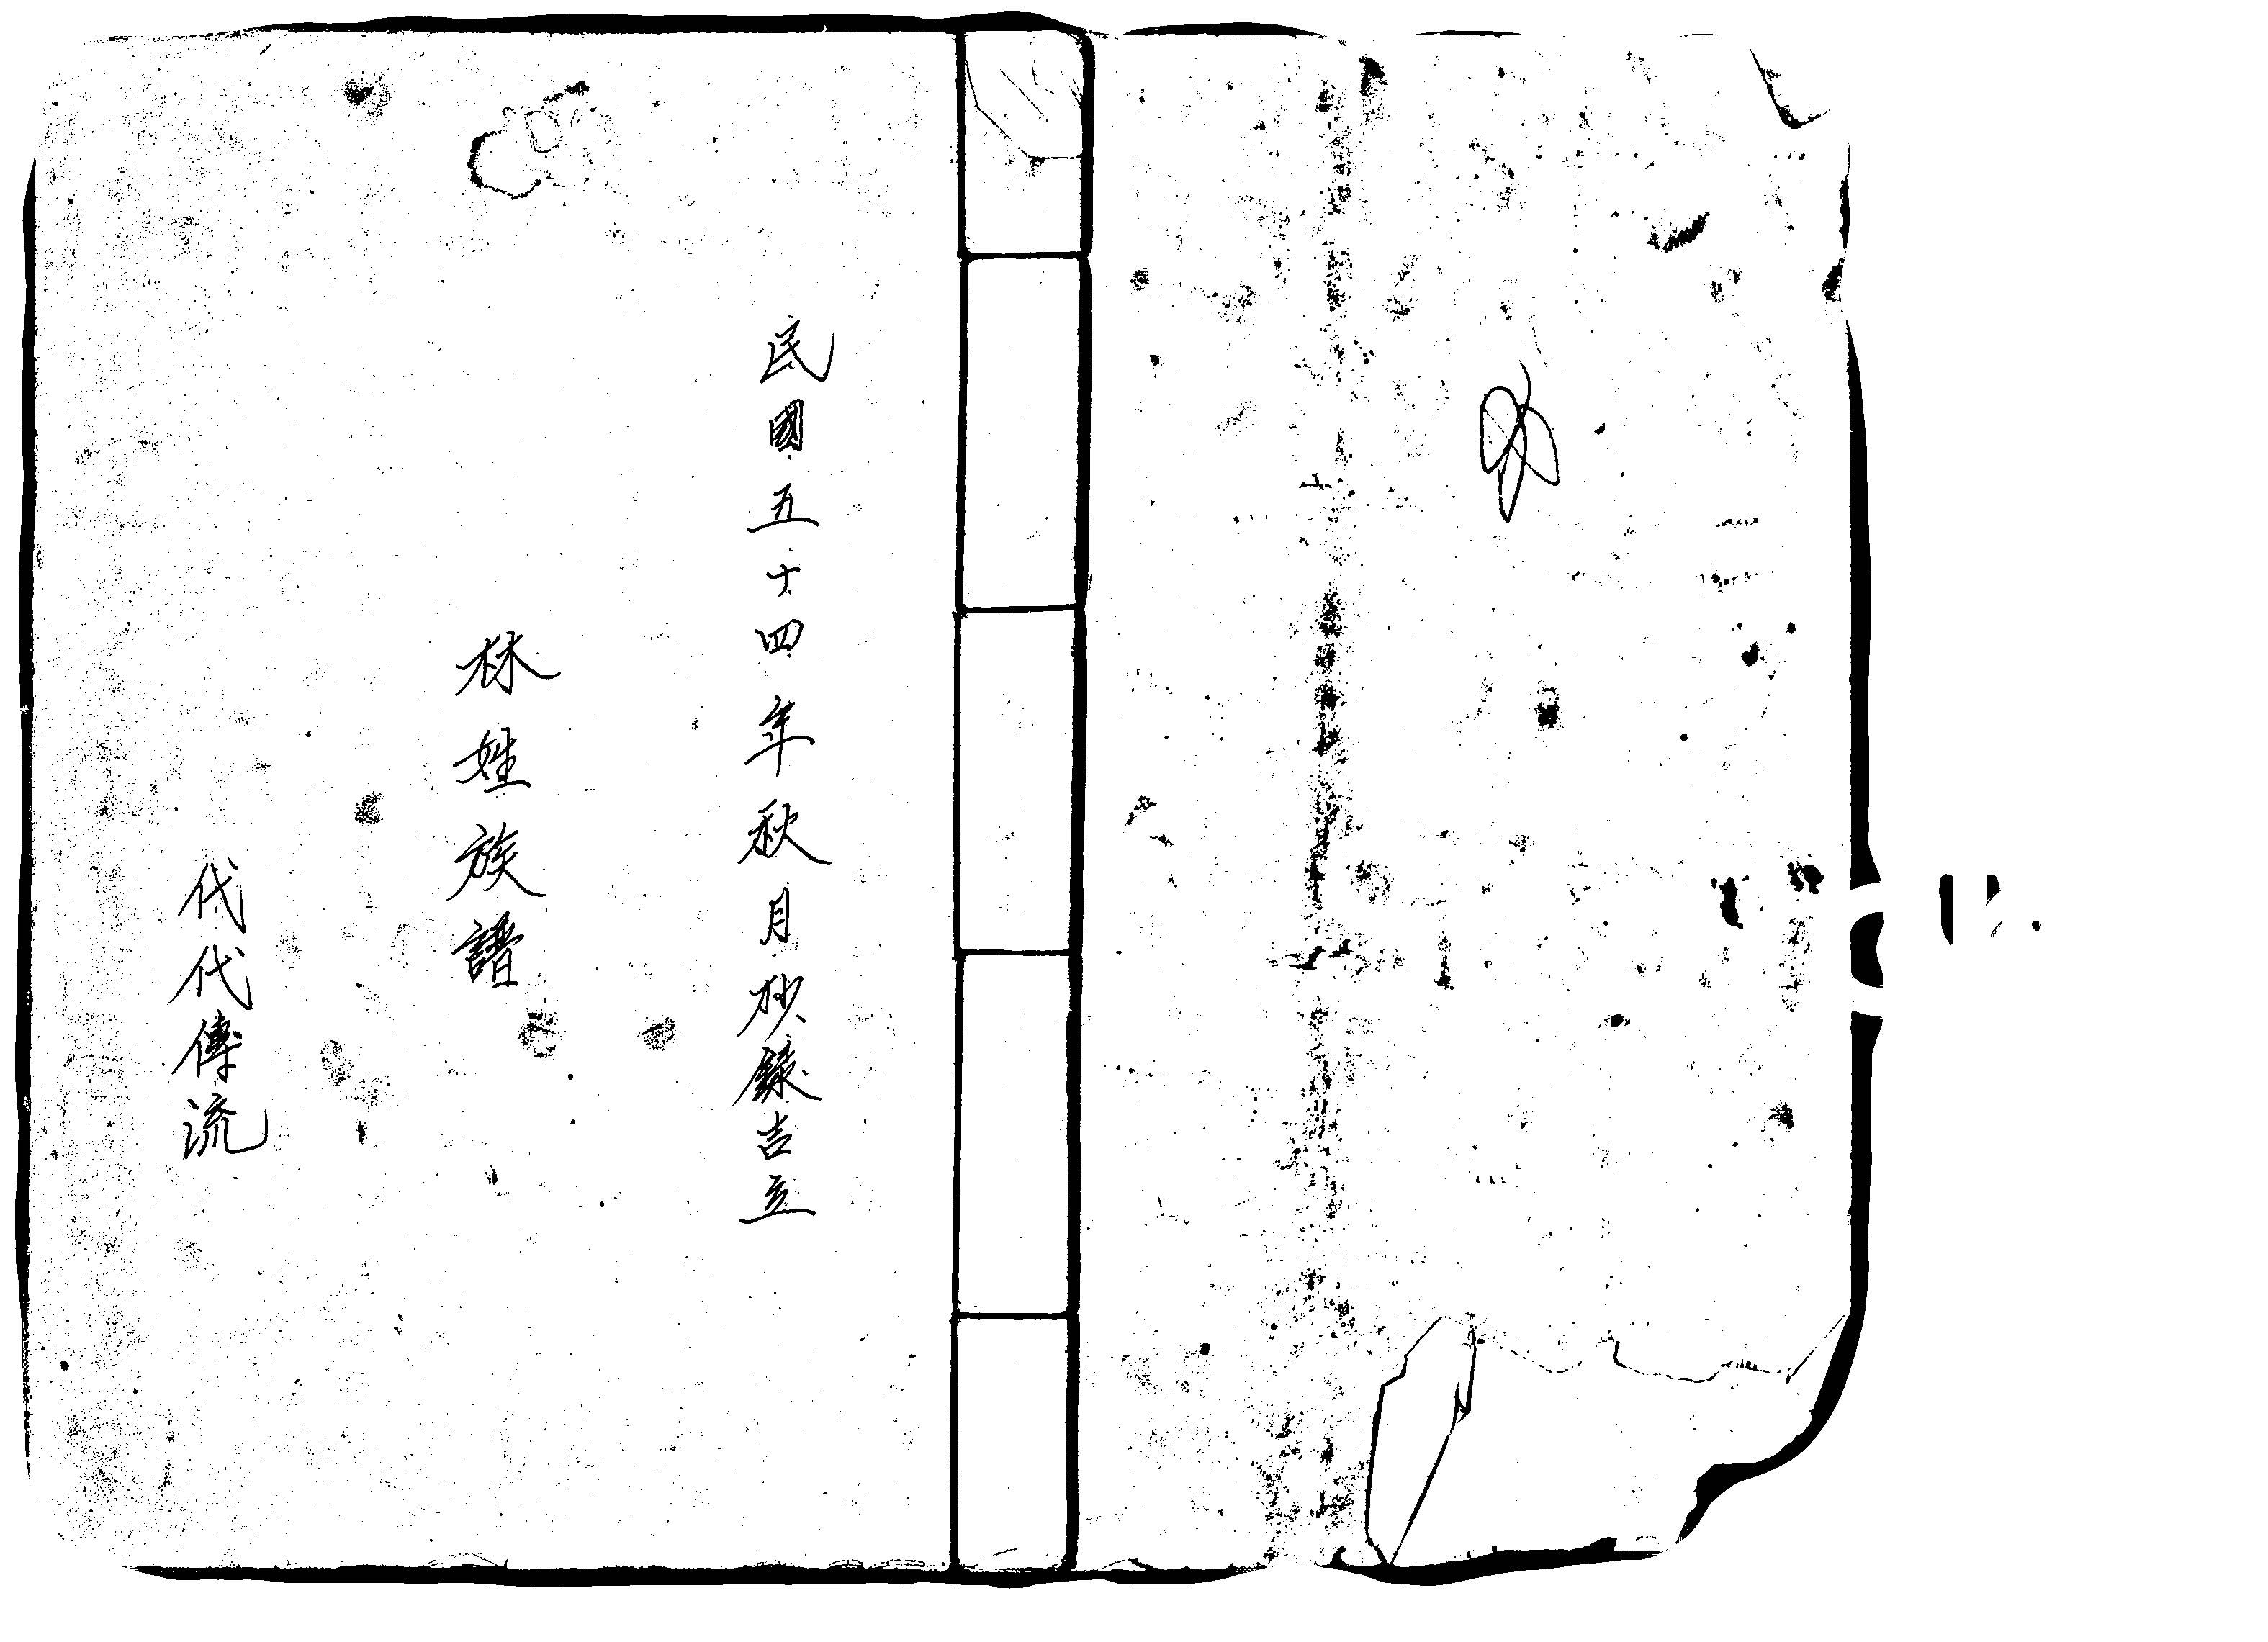 民國五十四年秋月抄錄吉立
林姓族譜
代代傳流